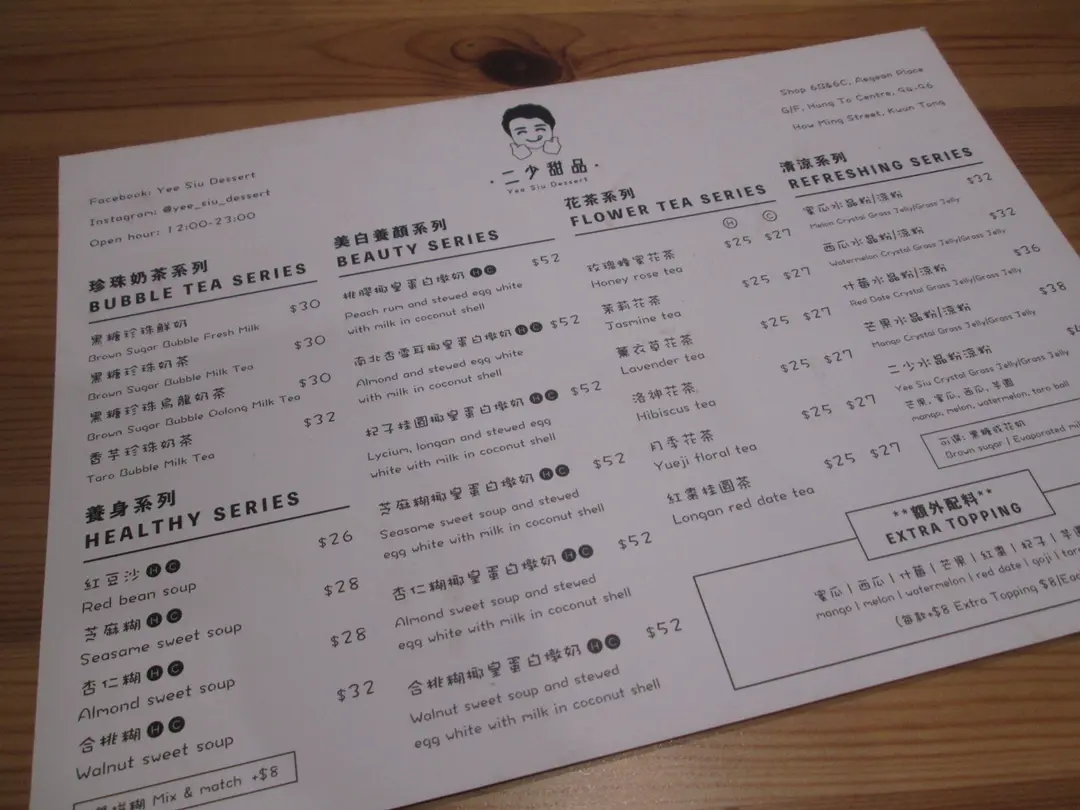 Facebook: Yee Siu Dessert
Instagram: @yee_siu_dessert
Open hour: 12:00-23:00
·二少甜品·
Yee Siu Dessert
Shop 6B&6C, Aegean Place
G/F, Hung To Centre, 94-96
How Ming Street, Kwun Tong
珍珠奶茶系列
BUBBLE TEA SERIES
黑糖珍珠鮮奶 $30
Brown Sugar Bubble Fresh Milk
黑糖珍珠奶茶 $30
Brown Sugar Bubble Milk Tea
黑糖珍珠烏龍奶茶 $30
Brown Sugar Bubble Oolong Milk Tea
香芋珍珠奶茶 $32
Taro Bubble Milk Tea
養身系列
HEALTHY SERIES
紅豆沙 H C $26
Red bean soup
芝麻糊 H C $28
Seasame sweet soup
杏仁糊 H C $28
Almond sweet soup
合桃糊 H C $32
Walnut sweet soup
糊 Mix & match +$8
美白養顏系列
BEAUTY SERIES
桃膠椰皇蛋白燉奶 H C $52
Peach rum and stewed egg white
with milk in coconut shell
南北杏雪耳椰皇蛋白燉奶 H C $52
Almond and stewed egg white
with milk in coconut shell
杞子桂圓椰皇蛋白燉奶 H C $52
Lycium, longan and stewed egg
white with milk in coconut shell
芝麻糊椰皇蛋白燉奶 H C $52
Seasame sweet soup and stewed
egg white with milk in coconut shell
杏仁糊椰皇蛋白燉奶 H C $52
Almond sweet soup and stewed
egg white with milk in coconut shell
合桃糊椰皇蛋白燉奶 H C $52
Walnut sweet soup and stewed
egg white with milk in coconut shell
花茶系列
FLOWER TEA SERIES
H C
玫瑰蜂蜜花茶 $25 $27
Honey rose tea
茉莉花茶 $25 $27
Jasmine tea
薰衣草花茶 $25 $27
Lavender tea
洛神花茶 $25 $27
Hibiscus tea
月季花茶 $25 $27
Yueji floral tea
紅棗桂圓茶 $25 $27
Longan red date tea
清涼系列
REFRESHING SERIES
蜜瓜水晶粉/涼粉 $32
Melon Crystal Grass Jelly/Grass Jelly
西瓜水晶粉/涼粉 $32
Watermelon Crystal Grass Jelly/Grass Jelly
什莓水晶粉/涼粉 $36
Red Date Crystal Grass Jelly/Grass Jelly
芒果水晶粉/涼粉 $38
Mango Crystal Grass Jelly/Grass Jelly
二少水晶粉涼粉
Yee Siu Crystal Grass Jelly/Grass Jelly
芒果, 蜜瓜, 西瓜, 芋圓
mango, melon, watermelon, taro ball
可選: 黑糖或花奶
Brown sugar / Evaporated
**額外配料**
EXTRA TOPPING
蜜瓜 | 西瓜 | 什莓 | 芒果 | 紅棗 | 杞子 | 芋圓
mango | melon | watermelon | red date | goji |
(每款+$8 Extra Topping $8/